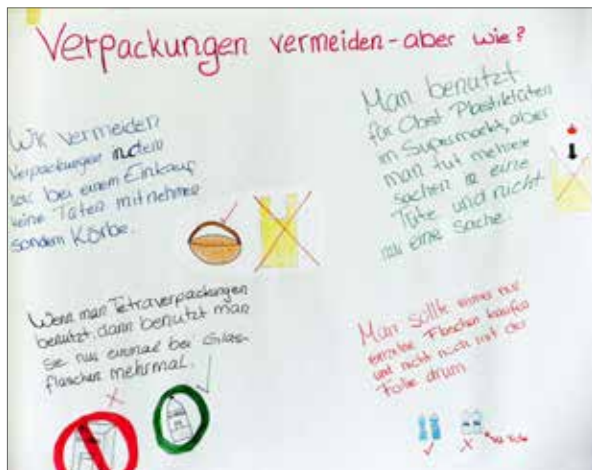 Verpackungen vermeiden - aber wie?
Wir vermeiden
Verpackungen indem
wir bei einem Einkauf
keine Tüten mitnehmen
sondern Körbe.
Man benutzt
für Obst Plastiktüten
im Supermarkt, aber
man tut mehrere
sachen in eine
Tüte und nicht
nur eine Sache.
Wenn man Tetraverpackungen
benutzt, dann benutzt man
sie nur einmal bei Glas-
flaschen mehrmal.
Man sollte immer nur
einzelne Flaschen kaufen
und nicht noch mit der
Folie drum